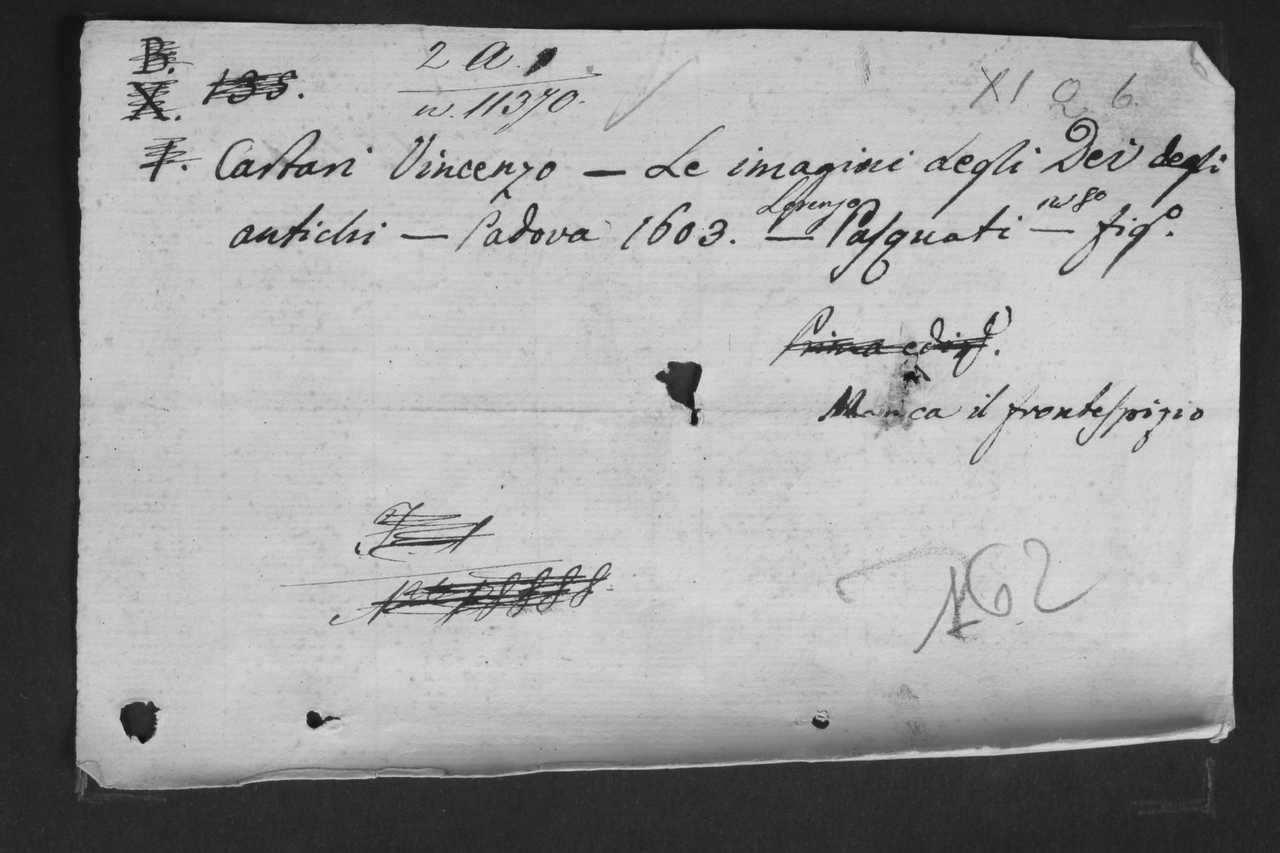 B.
X. 133.
2 A.
n. 11370.
XI Q 6.
Cartari Vincenzo — Le imagini degli Dei degli
antichi — Padova 1603. — Lorenzo Pasquati — in 8º fig.º
Prima ediz.
Manca il frontespizio
162